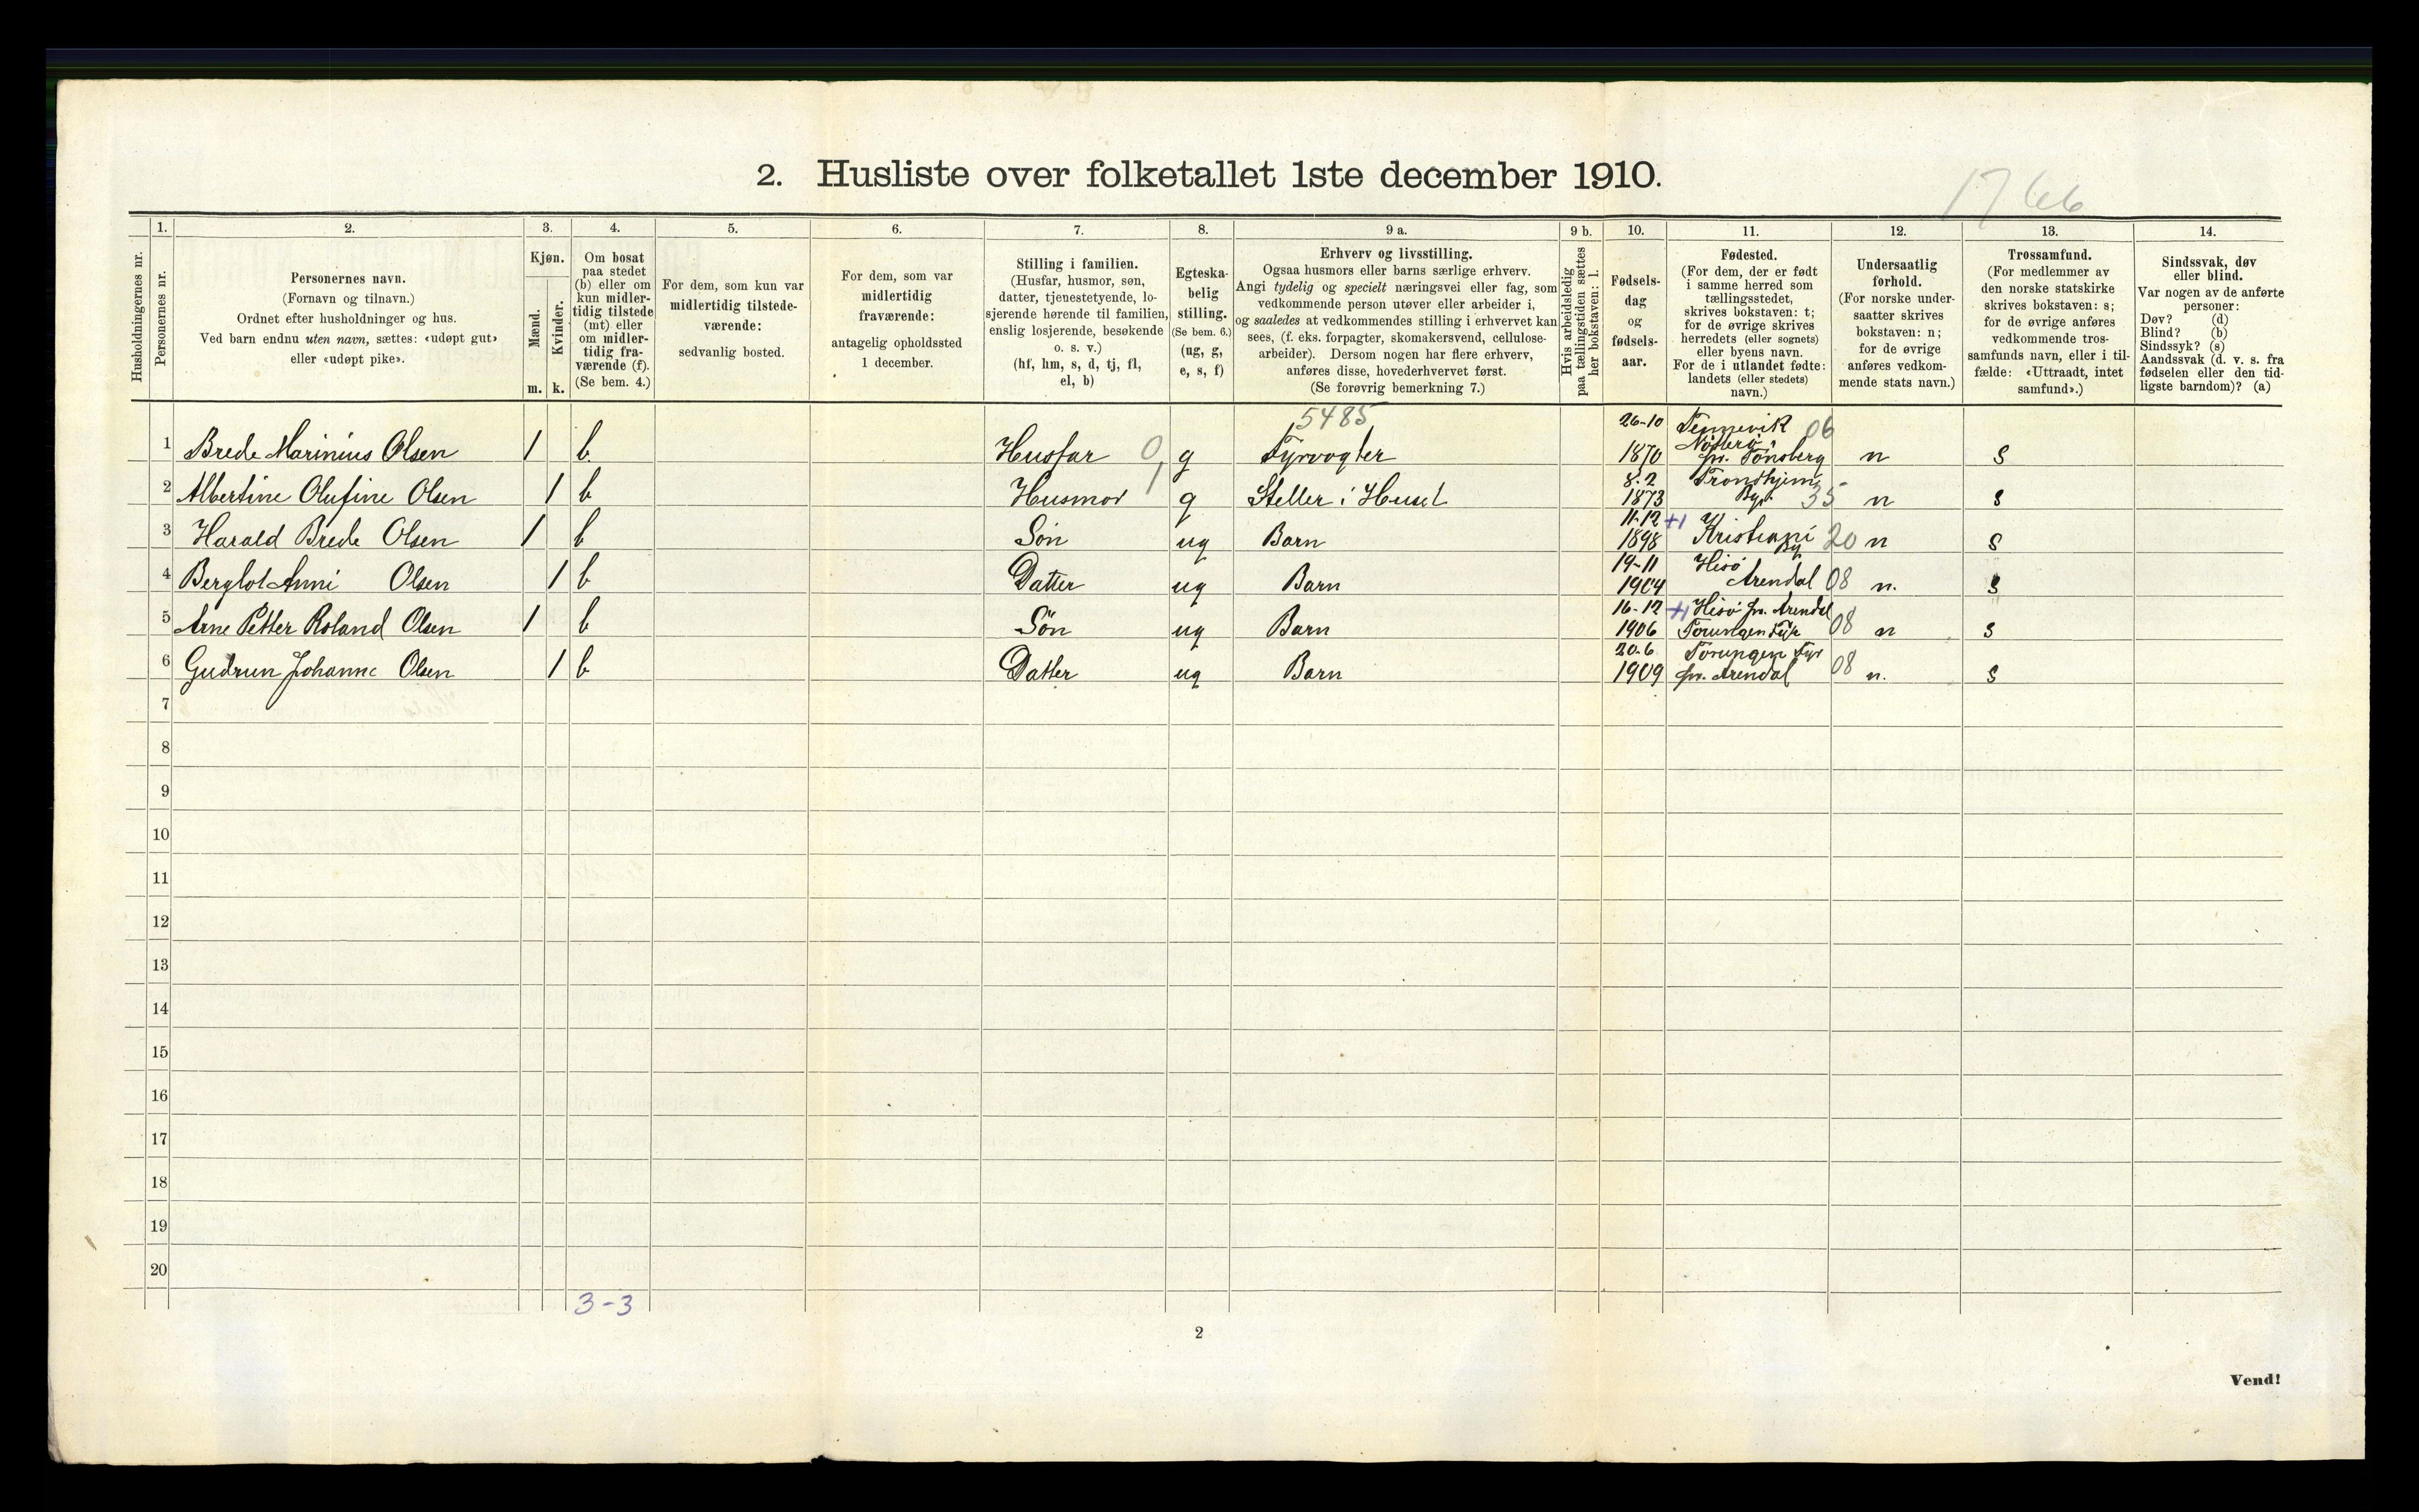 2. Husliste over folketallet 1ste december 1910.
1766
1. 2. 3. 4. 5. 6. 7. 8. 9 a. 9 b. 10. 11. 12. 13. 14.
Husholdningernes nr.
Personernes nr.
Personernes navn.
(Fornavn og tilnavn.)
Ordnet efter husholdninger og hus.
Ved barn endnu uten navn, sættes: «udøpt gut»
eller «udøpt pike».
Kjøn.
Mænd.
m.
Kvinder.
k.
Om bosat
paa stedet
(b) eller om
kun midler-
tidig tilstede
(mt) eller
om midler-
tidig fra-
værende (f).
(Se bem. 4.)
For dem, som kun var
midlertidig tilstede-
værende:
sedvanlig bosted.
For dem, som var
midlertidig
fraværende:
antagelig opholdssted
1 december.
Stilling i familien.
(Husfar, husmor, søn,
datter, tjenestetyende, lo-
sjerende hørende til familien,
enslig losjerende, besøkende
o. s. v.)
(hf, hm, s, d, tj, fl,
el, b)
Egteska-
belig
stilling.
(Se bem. 6.)
(ug, g,
e, s, f)
Erhverv og livsstilling.
Ogsaa husmors eller barns særlige erhverv.
Angi tydelig og specielt næringsvei eller fag, som
vedkommende person utøver eller arbeider i,
og saaledes at vedkommendes stilling i erhvervet kan
sees, (f. eks. forpagter, skomakersvend, cellulose-
arbeider). Dersom nogen har flere erhverv,
anføres disse, hovederhvervet først.
(Se forøvrig bemerkning 7.)
Hvis arbeidsledig
paa tællingstiden sættes
her bokstaven: l.
Fødsels-
dag
og
fødsels-
aar.
Fødested.
(For dem, der er født
i samme herred som
tællingsstedet,
skrives bokstaven: t;
for de øvrige skrives
herredets (eller sognets)
eller byens navn.
For de i utlandet fødte:
landets (eller stedets)
navn.)
Undersaatlig
forhold.
(For norske under-
saatter skrives
bokstaven: n;
for de øvrige
anføres vedkom-
mende stats navn.)
Trossamfund.
(For medlemmer av
den norske statskirke
skrives bokstaven: s;
for de øvrige anføres
vedkommende tros-
samfunds navn, eller i til-
fælde: «Uttraadt, intet
samfund».)
Sindssvak, døv
eller blind.
Var nogen av de anførte
personer:
Døv? (d)
Blind? (b)
Sindssyk? (s)
Aandssvak (d. v. s. fra
fødselen eller den tid-
ligste barndom)? (a)
5485 26-10 Tennevik 06
Nøtterø
1 Brede Marinius Olsen 1 b Husfar 0 g Fyrvogter 1870 pr. Tønsberg n s
8.2 Trondhjem
2 Albertine Olufine Olsen 1 b Husmor 1 g Steller i Huset 1873 By 35 n s
11-12 +1
3 Harald Brede Olsen 1 b Søn ug Barn 1898 Kristiani By 20 n s
19-11 Hisø
4 Berglot Anni Olsen 1 b Datter ug Barn 1904 Arendal 08 n. s
16-12 +1 Hisø pr. Arendal
5 Arne Petter Roland Olsen 1 b Søn ug Barn 1906 Torungen Fyr 08 n s
20.6 Torungen Fyr
6 Gudrun Johanne Olsen 1 b Datter ug Barn 1909 pr. Arendal 08 n. s
7
8
9
10
11
12
13
14
15
16
17
18
19
20
3-3
2
Vend!